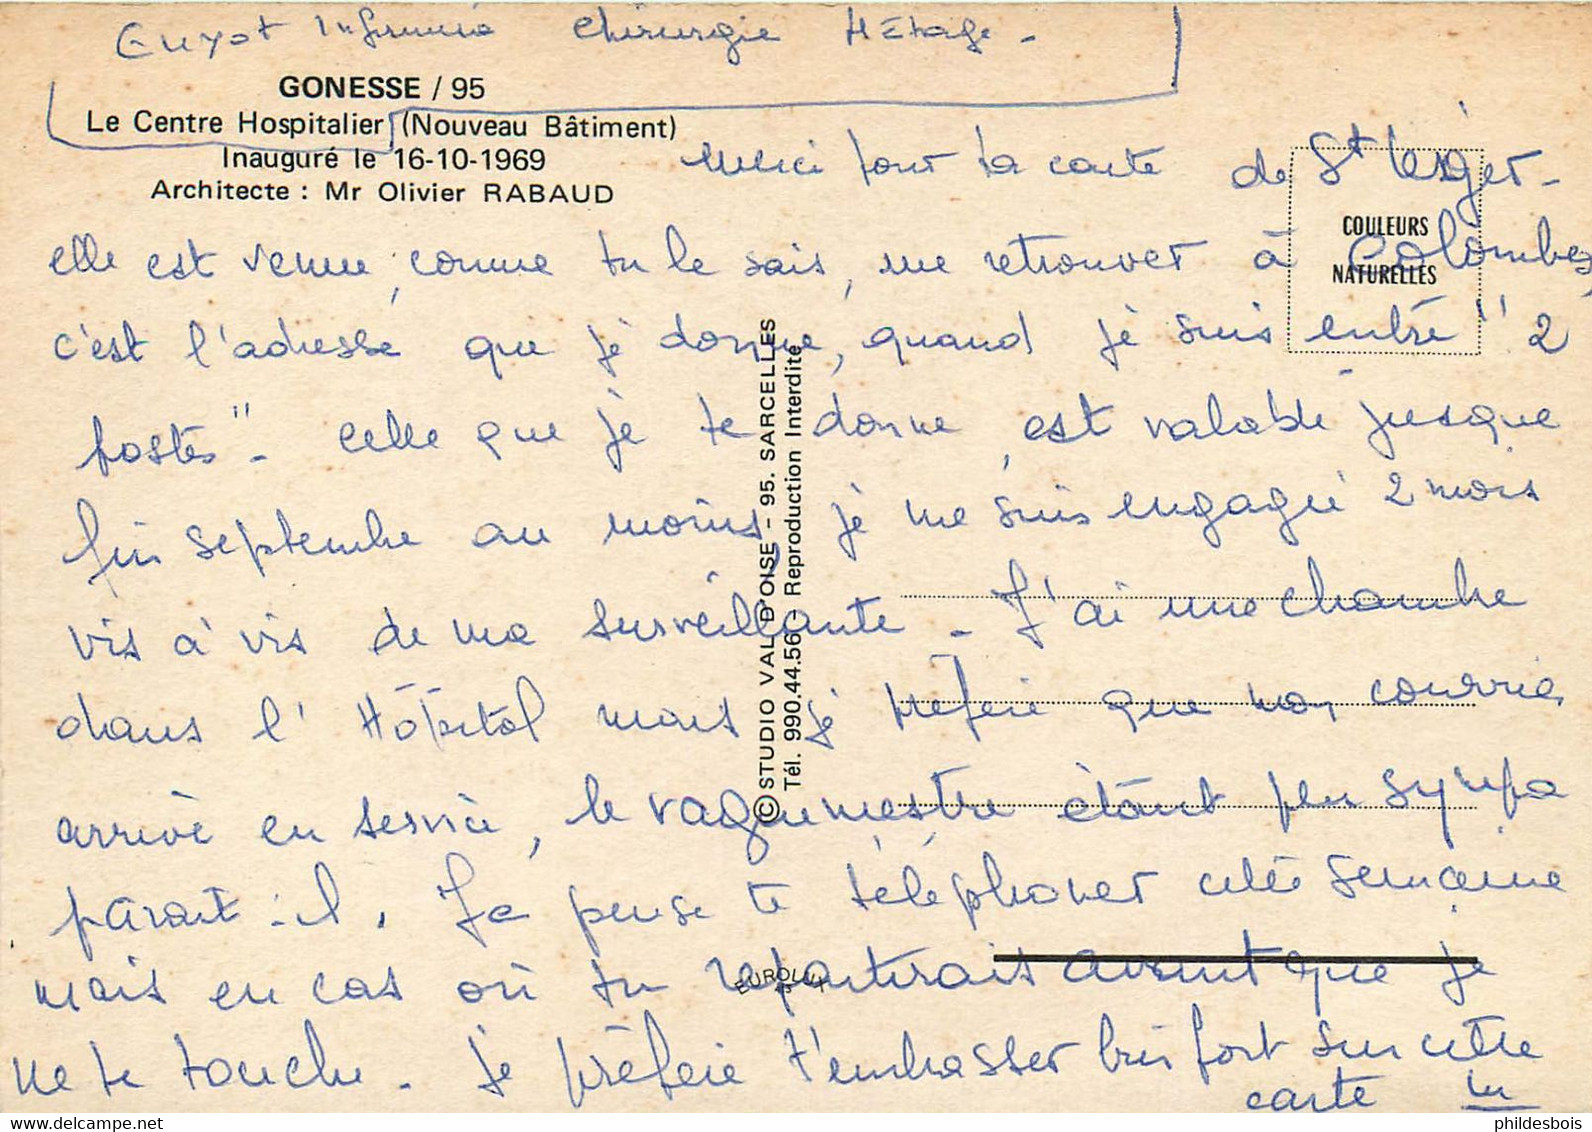 Guyot Infirmier chirurgie 4 Etage -
GONESSE / 95
Le Centre Hospitalier (Nouveau Bâtiment)
Inauguré le 16-10-1969
Architecte : Mr Olivier RABAUD
COULEURS
NATURELLES
merci pour ta carte de St Léger -
elle est venue, comme tu le sais, me retrouver à Colombes,
c'est l'adresse que je donne, quand je suis entre "2
postes" - celle que je te donne, est valable jusque
fin septembre au moins, je me suis engagé 2 mois
vis à vis de ma surveillante - J'ai une chambre
dans l'Hôpital mais je préfère que mon courrier
arrive en service, le vaguemestre étant peu sympa
parait-il. Je pense te téléphoner cette semaine
mais en cas où tu repartirais avant que je
ne te touche - je préfère t'embrasser très fort sur cette
carte
© STUDIO VAL D'OISE - 95. SARCELLES
Tél. 990.44.56 - Reproduction Interdite
EUROLUX
phildesbois